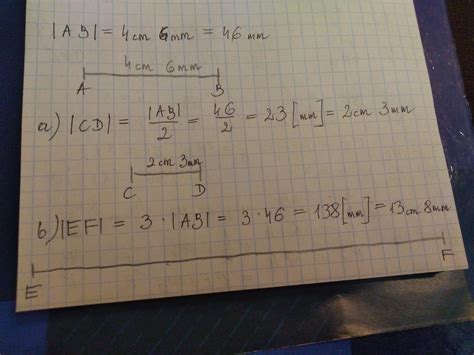 |AB| = 4cm 6mm = 46mm
4cm 6mm
A B
a) |CD| = |AB|/2 = 46/2 = 23 [mm] = 2cm 3mm
2cm 3mm
C D
b) |EF| = 3 · |AB| = 3 · 46 = 138 [mm] = 13cm 8mm
E F